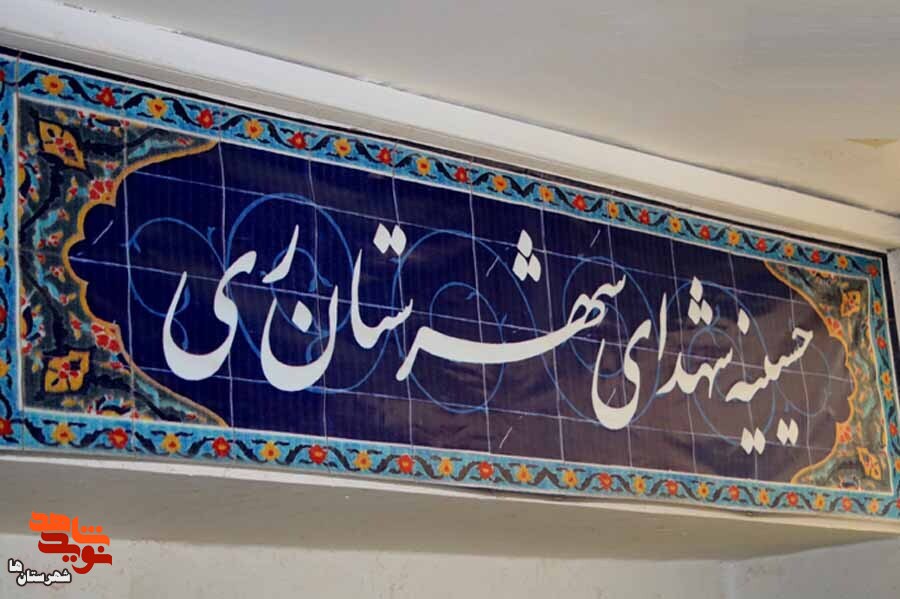 حسینیه شهدای شهرستان ری
نوید شاهد
شهرستان‌ها